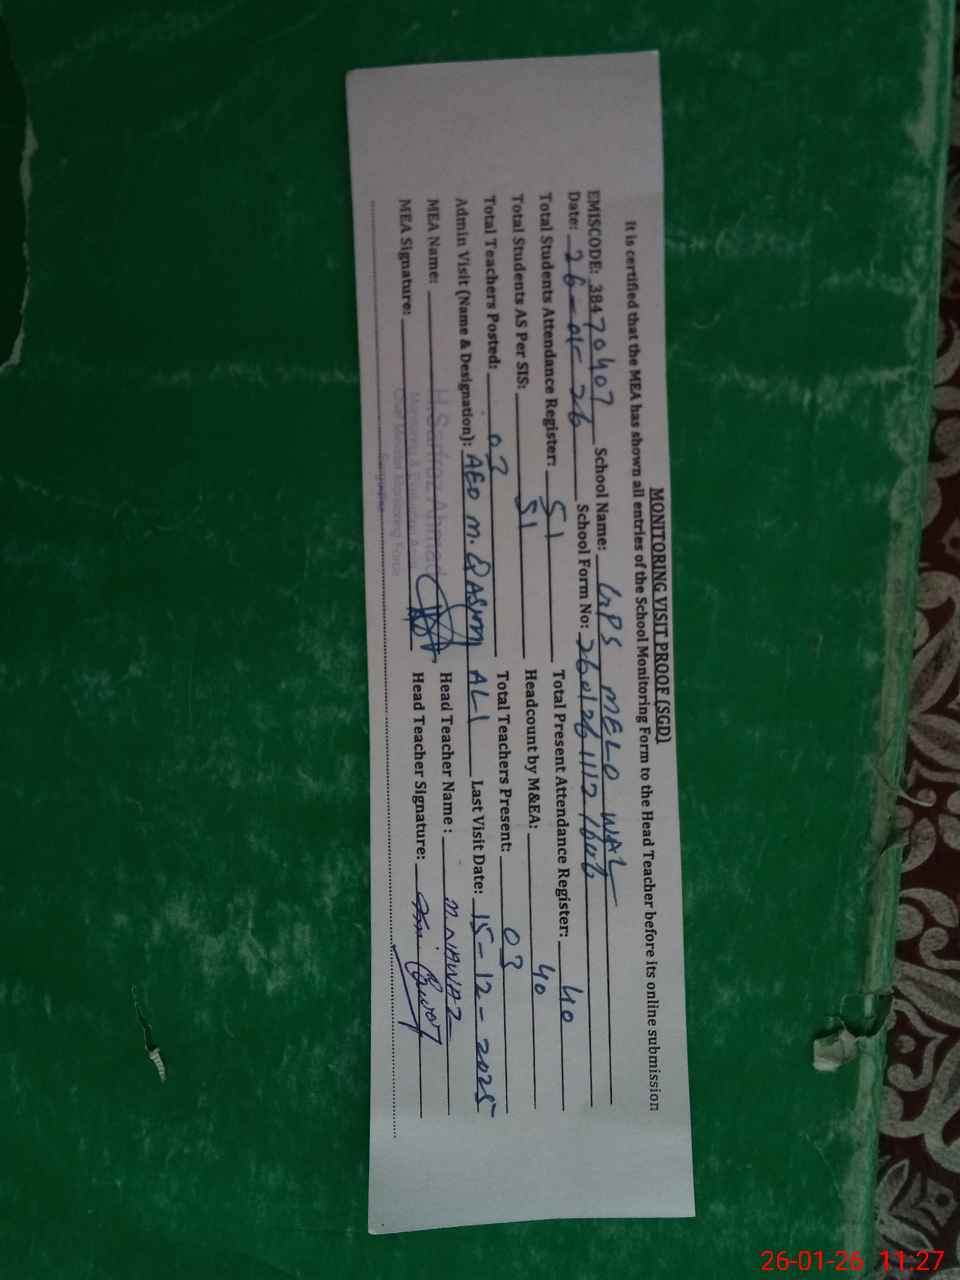 MONITORING VISIT PROOF (SGD)
It is certified that the MEA has shown all entries of the School Monitoring Form to the Head Teacher before its online submission
EMISCODE: 38470407 School Name: GPS MELO WAL
Date: 26-01-26 School Form No:
Total Students Attendance Register: 51 Total Present Attendance Register: 40
Total Students AS Per SIS: 51 Headcount by M&EA: 40
Total Teachers Posted: 03 Total Teachers Present: 03
Admin Visit (Name & Designation): AEO M. QASIM ALI Last Visit Date: 15-12-2025
MEA Name: Sarfraz Ahmad Head Teacher Name : M. NAWAZ
Monitoring & Evaluation
Chief Minister Monitoring Force
MEA Signature: Head Teacher Signature:
26-01-26 11:27